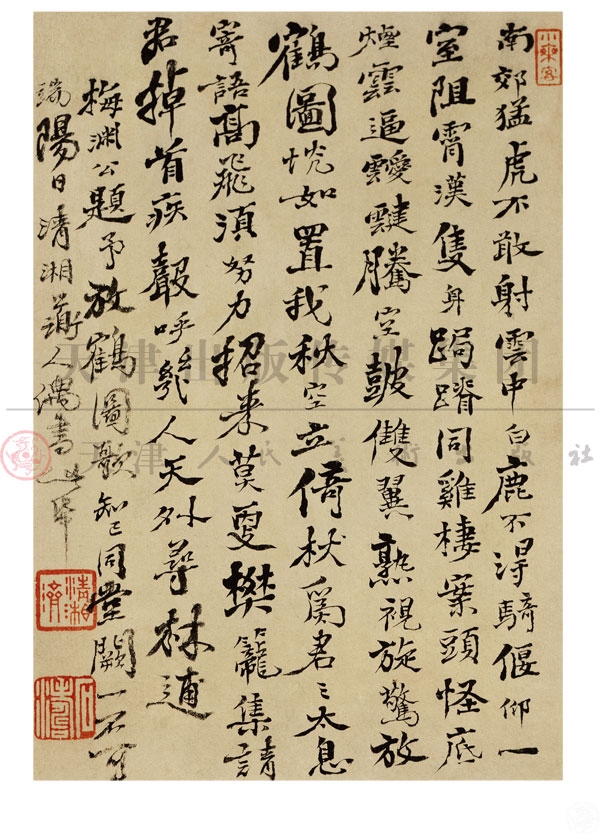 南郊猛虎不敢射雲中白鹿不得騎偃仰一
室阻霄漢隻身跼蹐同雞棲案頭怪底
煙雲逼靉靆騰空皷雙翼熟視旋驚放
鶴圖恍如置我秋空立倚杖為君〻太息
寄語高飛須努力招來莫受樊籠集請
君掉首疾聲呼幾人天外尋林逋
梅淵公題予放鶴圖歌知己同堂闕一不可
端陽日清湘道人偶書
小乘客
清湘濟
石濤
天津出版传媒集团
天津人民美术出版社